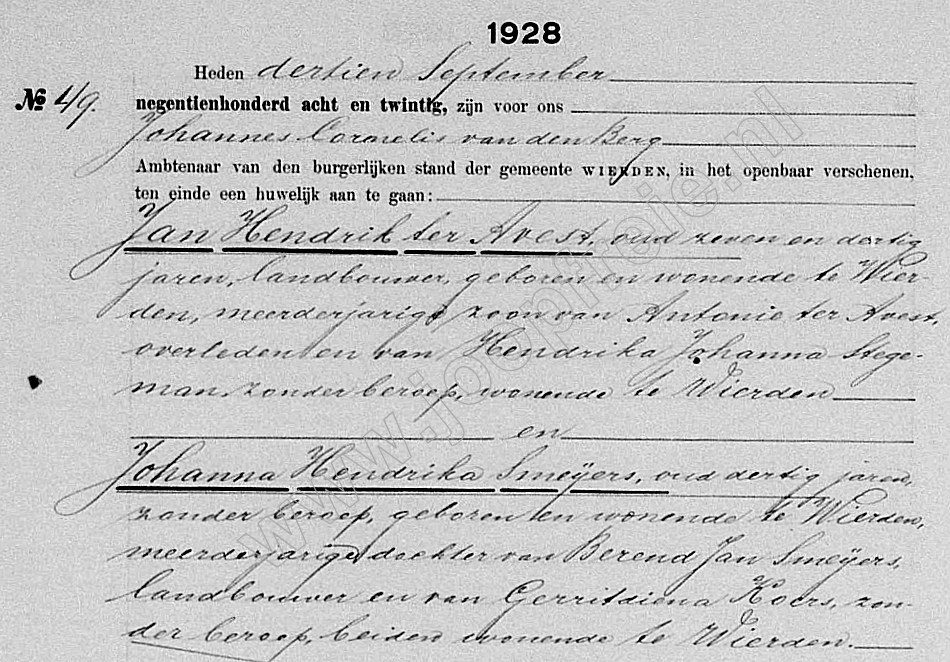 1928
Heden dertien September
№ 49.
negentienhonderd acht en twintig, zijn voor ons
Johannes Cornelis van den Berg
Ambtenaar van den burgerlijken stand der gemeente WIERDEN, in het openbaar verschenen,
ten einde een huwelijk aan te gaan:
Jan Hendrik ter Avest, oud zeven en dertig
jaren, landbouwer, geboren en wonende te Wier-
den, meerderjarige zoon van Antonie ter Avest,
overleden en van Hendrika Johanna Stege-
man, zonder beroep, wonende te Wierden
en
Johanna Hendrika Smeÿers, oud dertig jaren,
zonder beroep, geboren en wonende te Wierden,
meerderjarige dochter van Berend Jan Smeÿers,
landbouwer en van Gerritdiena Koers, zon-
der beroep, beiden wonende te Wierden.
www.jooploeie.nl